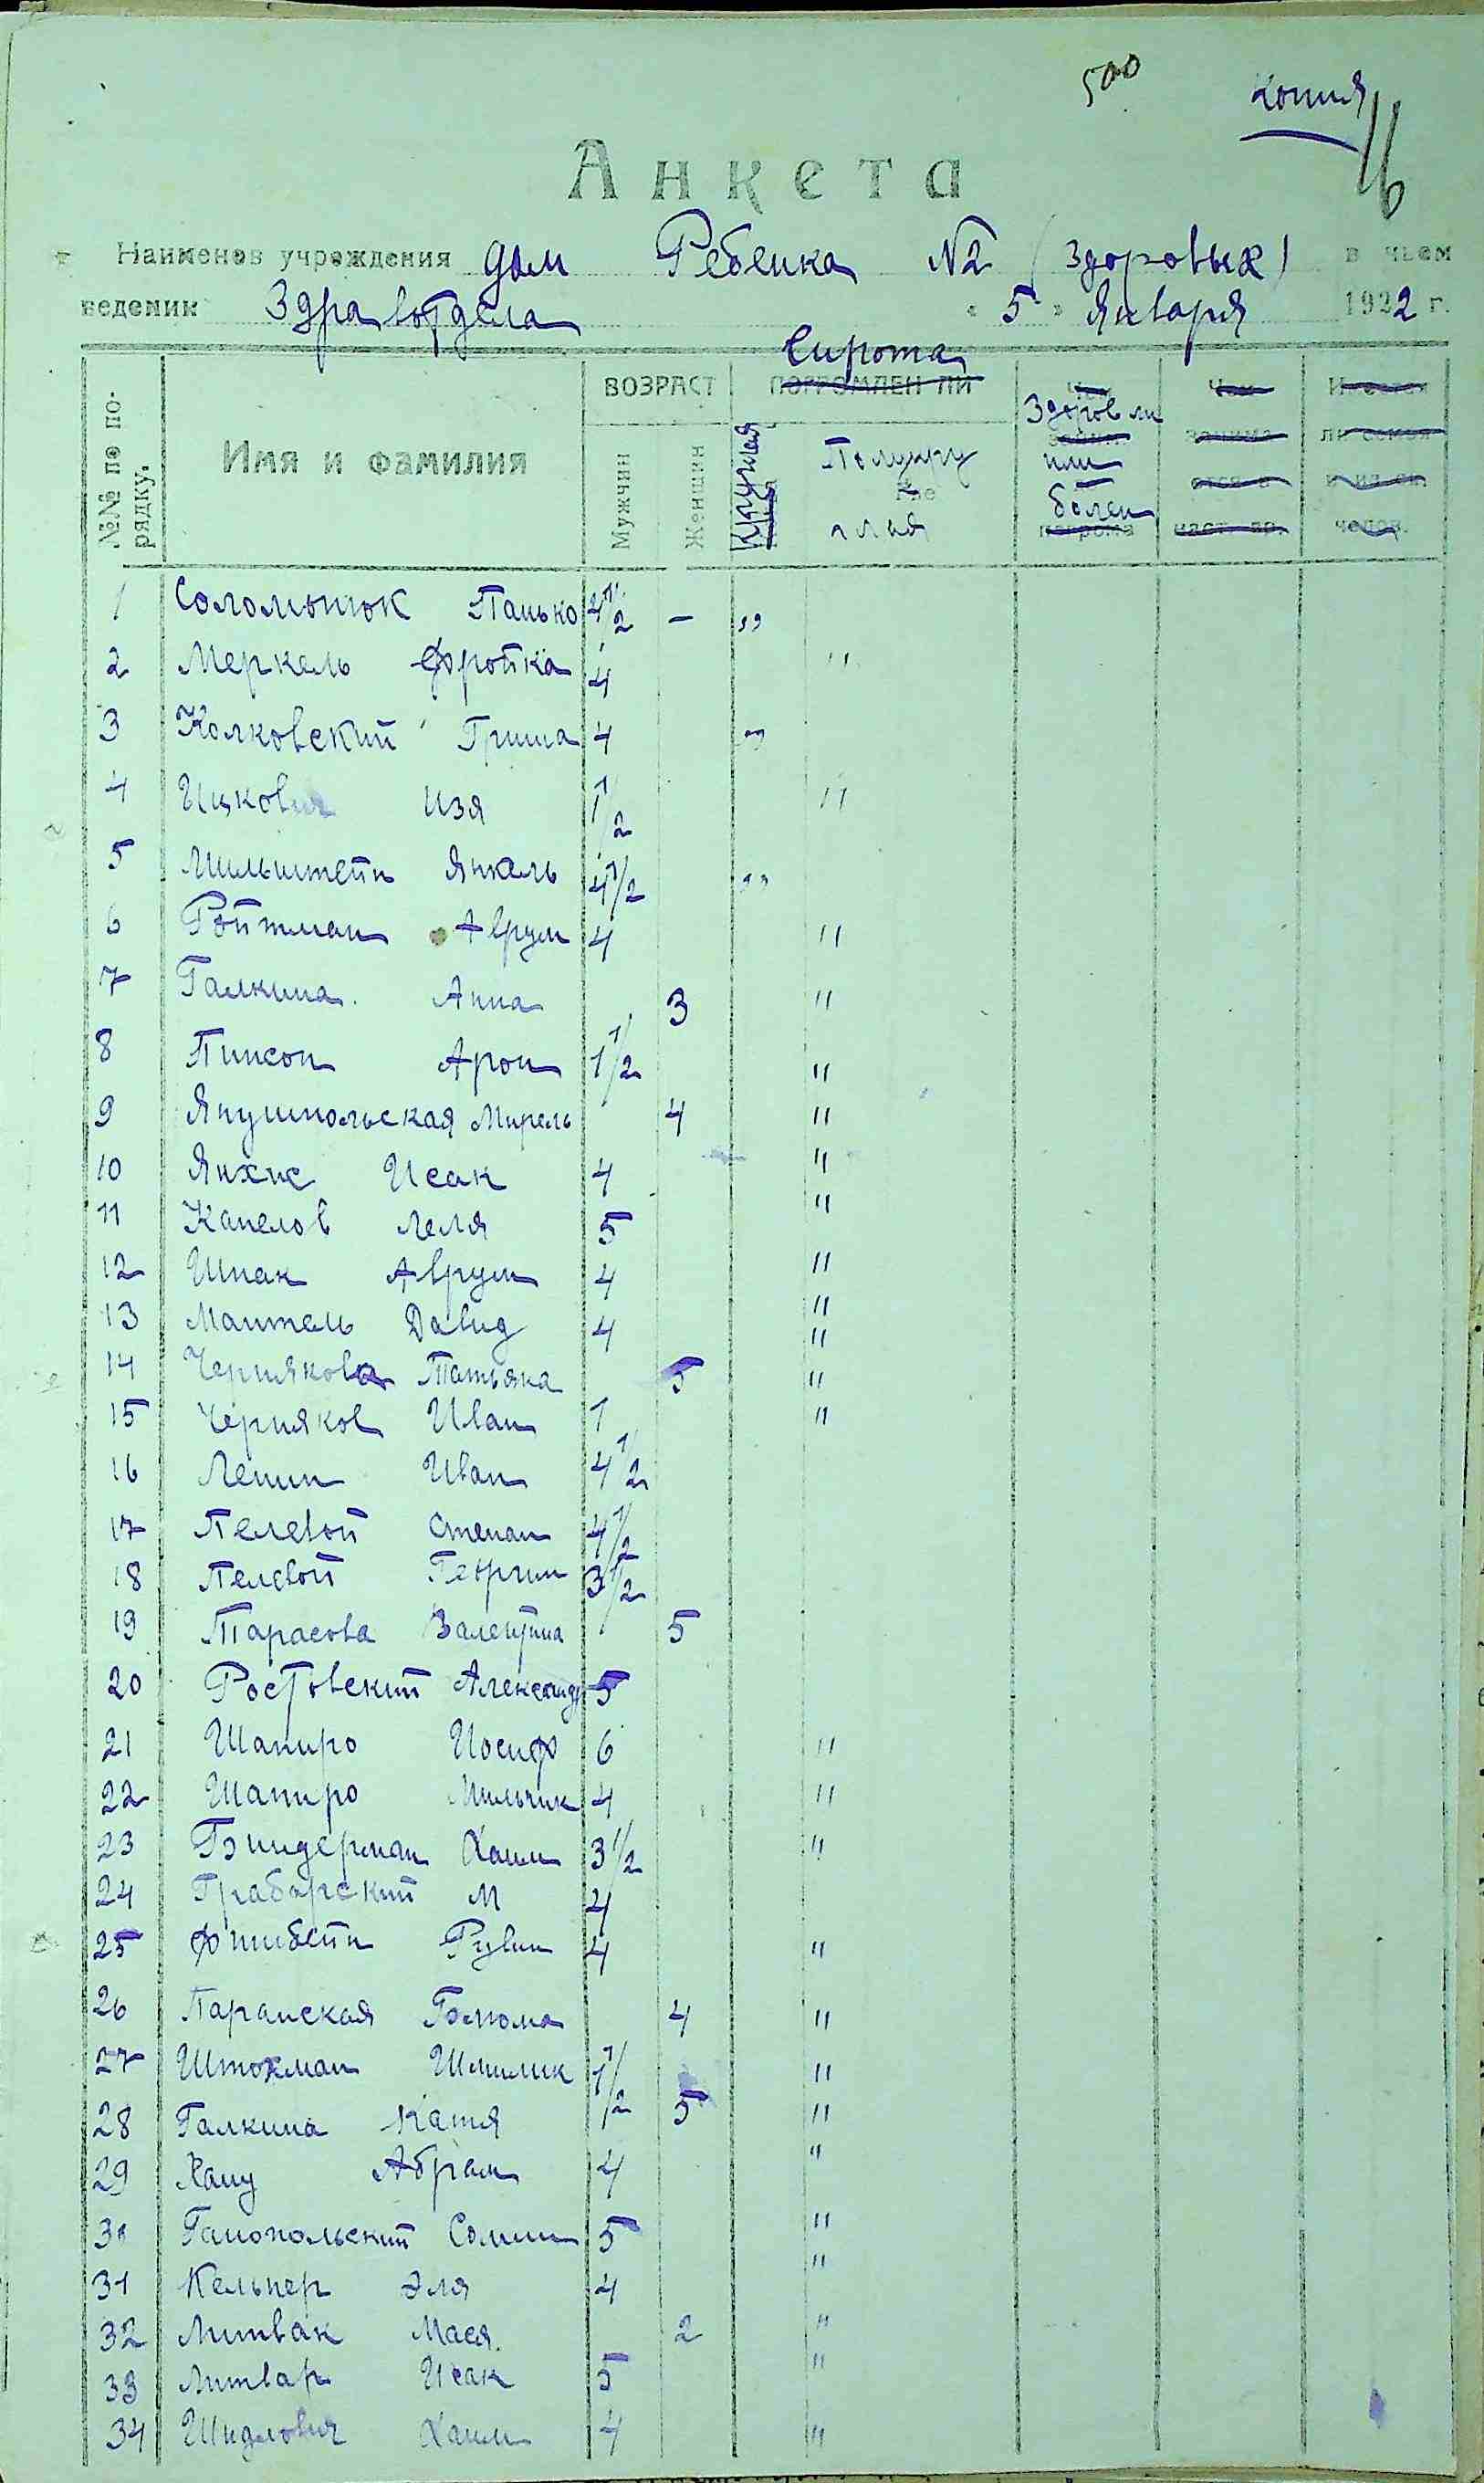 500 Копия
Анкета
Наименов учреждения дом Ребенка N2 (здоровых) в чьем
ведении Здравотдела « 5 » Января 1922 г.
№№ по по-
рядку.
Имя и фамилия
ВОЗРАСТ
Мужчин
Женщин
Сирота
ПОГРОМЛЕН ЛИ
Круглая
Полукру
глая
Здоров ли
или
болен
1 Соломонюк Панько 4 1/2 – "
2 Меркель Фройка 4 "
3 Колковский Гриша 4 "
4 Ицкович Изя 1/2 "
5 Мильштейн Янкель 4 1/2 "
6 Ройтман Аврум 4 "
7 Галкина Анна 3 "
8 Пинсон Арон 1 1/2 "
9 Янушпольская Мирель 4 "
10 Янхис Исак 4 "
11 Капелов Леля 5 "
12 Шпак Аврум 4 "
13 Мантель Давид 4 "
14 Чернякова Татьяна 5 "
15 Черняков Иван 1 "
16 Ленин Иван 4 1/2
17 Пелевой Степан 4 1/2
18 Пелевой Георгии 3 1/2
19 Тарасова Валентина 5
20 Ростовский Александр 5
21 Шапиро Иосиф 6 "
22 Шапиро Мильчик 4 "
23 Биндерман Хаим 3 1/2 "
24 Граборский М 4
25 Фишбейн Рувин 4 "
26 Паранская Блюма 4 "
27 Штокман Шмилик 1/2 "
28 Галкина Катя 5 "
29 Абрам 4 "
30 Ганопольский 5 "
31 Кельнер Эля 4 "
32 Литвак Мася 2 "
33 Литвак Исак 5 "
34 Шидлович Хаим 4 "